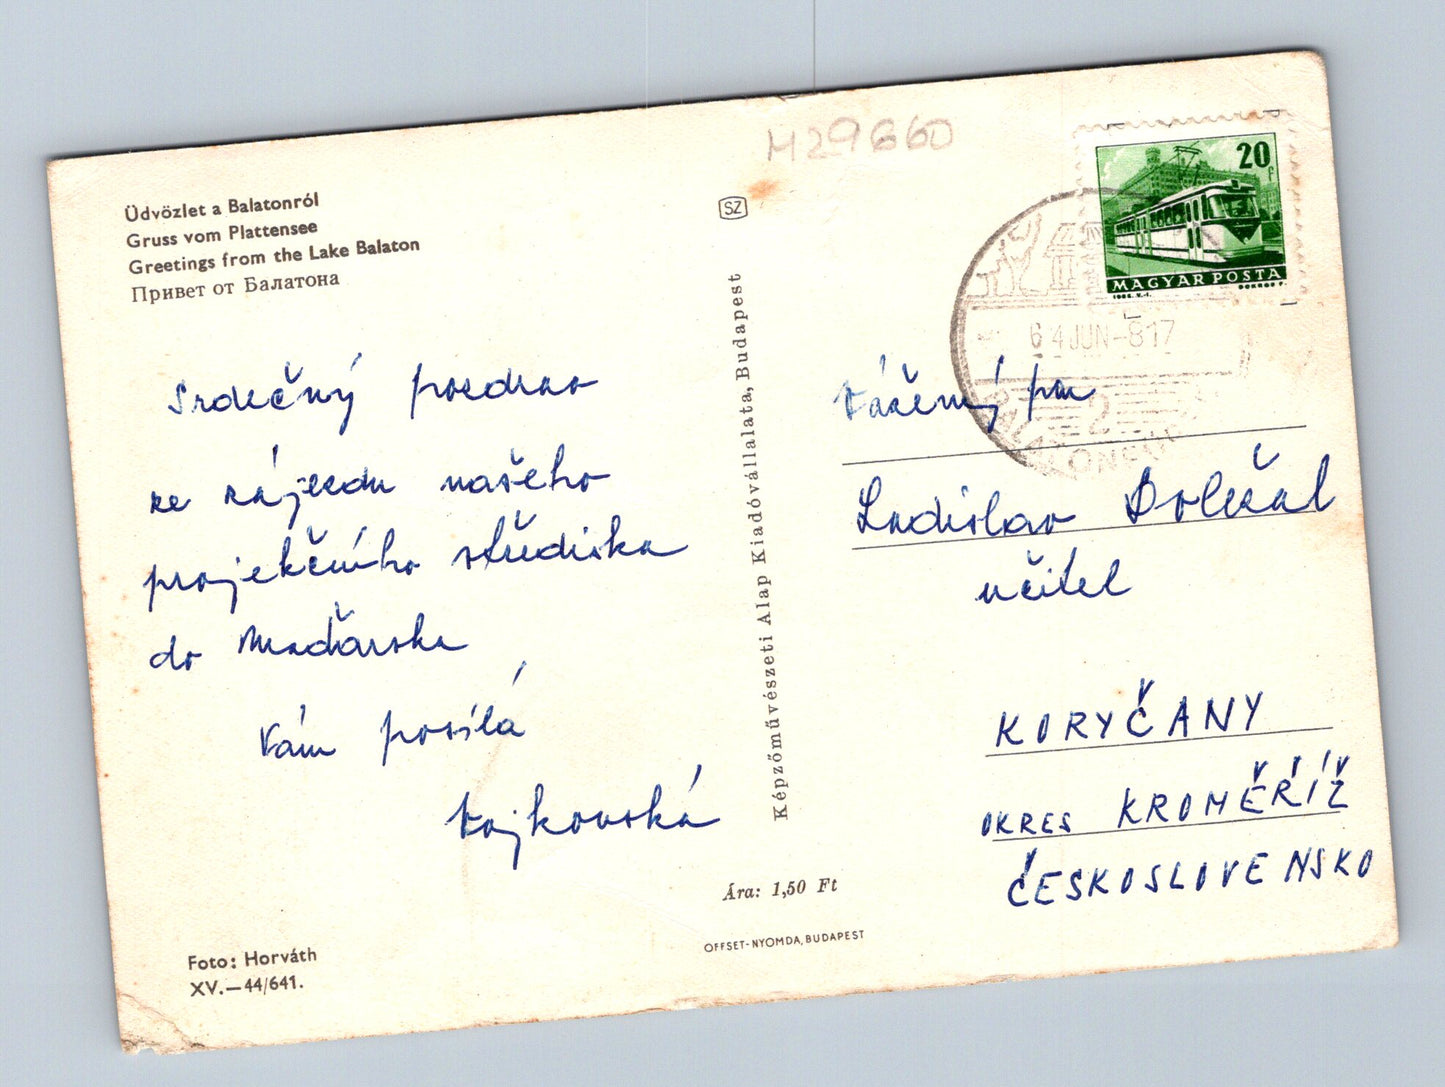 Üdvözlet a Balatonról
Gruss vom Plattensee
Greetings from the Lake Balaton
Привет от Балатона
Srdečný pozdrav
ze zájezdu našeho
projekčního střediska
do Maďarska
Vám posílá
Vojkovská
Foto: Horváth
XV.—44/641.
M29660
SZ
Képzőművészeti Alap Kiadóvállalata, Budapest
Ára: 1,50 Ft
OFFSET-NYOMDA, BUDAPEST
20 f
MAGYAR POSTA
64 JUN-817
Vážený pan
Ladislav Doležal
učitel
KORYČANY
OKRES KROMĚŘÍŽ
ČESKOSLOVENSKO